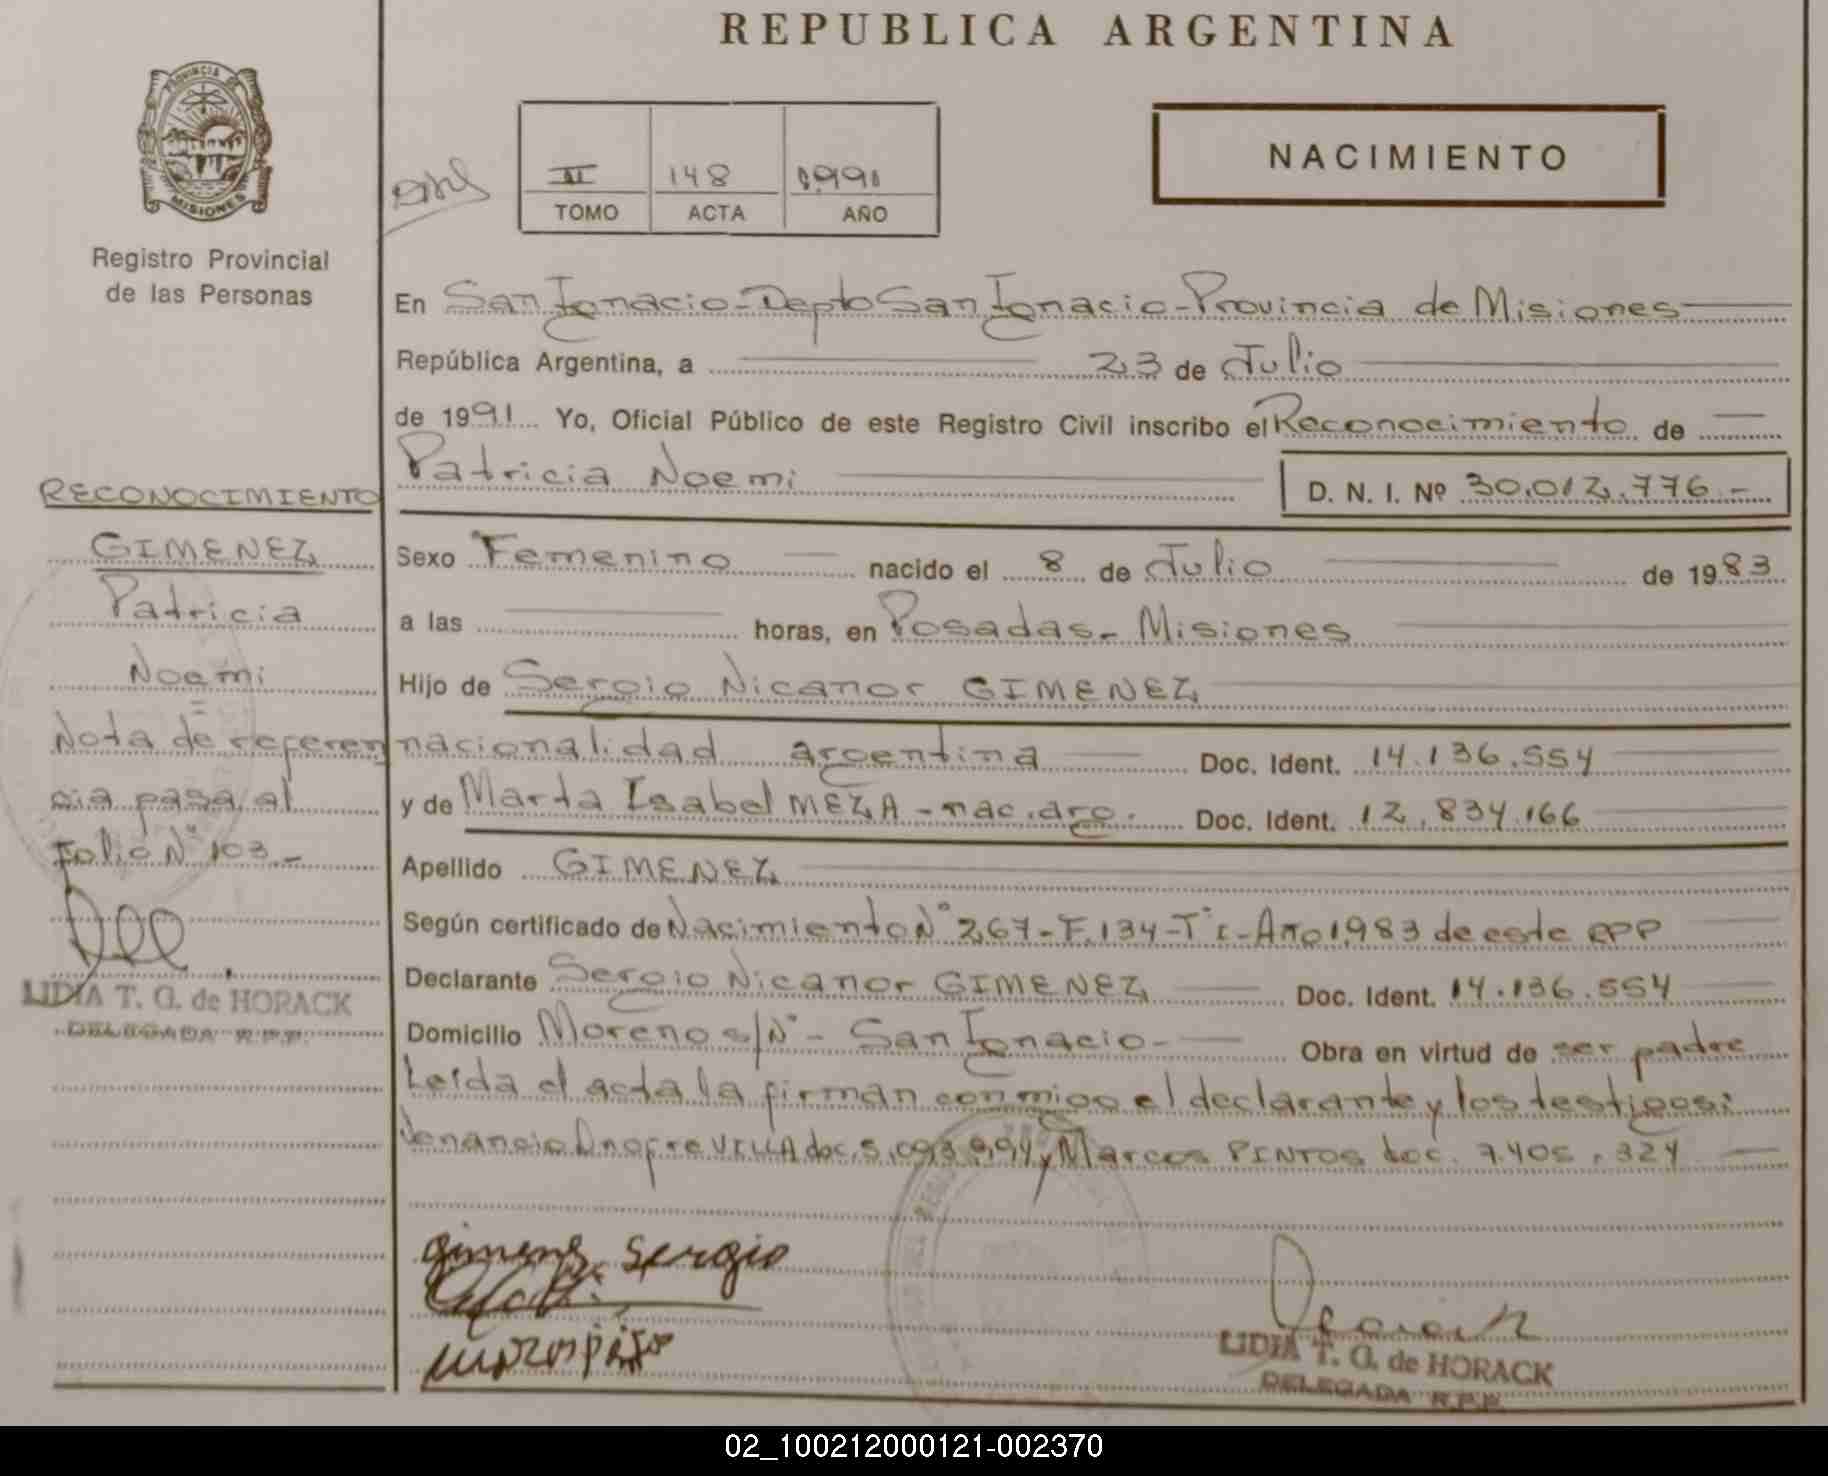 REPUBLICA ARGENTINA
PROVINCIA DE
MISIONES
Registro Provincial
de las Personas
II 148 1991
TOMO ACTA AÑO
NACIMIENTO
En San Ignacio-Depto San Ignacio-Provincia de Misiones
República Argentina, a 23 de Julio
de 1991 Yo, Oficial Público de este Registro Civil inscribo el Reconocimiento de
Patricia Noemi D. N. I. Nº 30.012.776.-
Sexo Femenino nacido el 8 de Julio de 1983
a las horas, en Posadas- Misiones
Hijo de Sergio Nicanor GIMENEZ
nacionalidad argentina Doc. Ident. 14.136.554
y de Marta Isabel MEZA - nac. arg. Doc. Ident. 12.834.166
Apellido GIMENEZ
Según certificado de Nacimiento N° 267-F.134-T° I-Año 1983 de este RPP
Declarante Sergio Nicanor GIMENEZ Doc. Ident. 14.136.554
Domicilio Moreno s/N° - San Ignacio- Obra en virtud de ser padre
Leida el acta la firman conmigo el declarante y los testigos:
Venancio Onofre VILLA doc. 5.093.994 y Marcos PINTOS doc. 7.405.324
RECONOCIMIENTO
GIMENEZ
Patricia
Noemi
=
Nota de referen
cia pasa al
Folio N° 103-
LIDIA T. G. de HORACK
DELEGADA R.P.P.
gimenez sergio
LIDIA T. G. de HORACK
DELEGADA R.P.P.
02_100212000121-002370